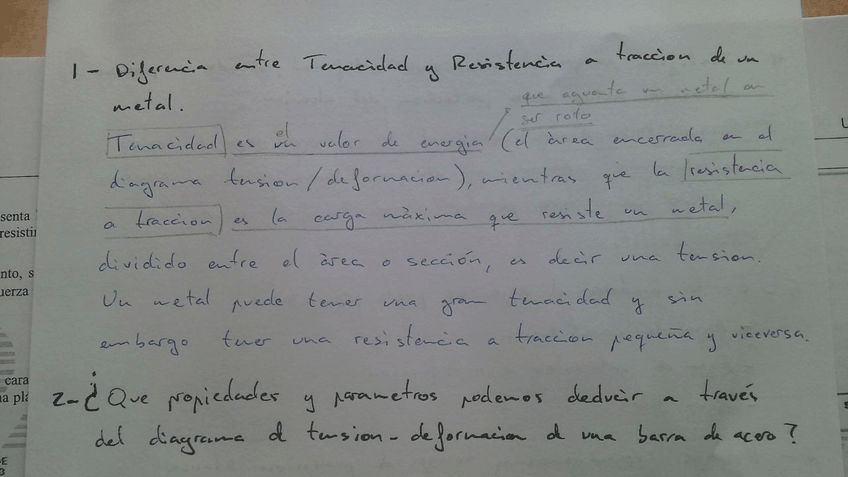 1- Diferencia entre Tenacidad y Resistencia a traccion de un
metal.
que aguanta un metal en
ser roto
Tenacidad es el valor de energia (el àrea encerrada en el
diagrama tension/deformacion), mientras que la resistencia
a traccion es la carga màxima que resiste un metal,
dividido entre el àrea o sección, es decir una tension.
Un metal puede tener una gran tenacidad y sin
embargo tener una resistencia a traccion pequeña y viceversa.
2-¿Que propiedades y parametros podemos deducir a través
del diagrama d tension-deformacion d una barra de acero?
senta
resistir
nto, s
uerza
cara